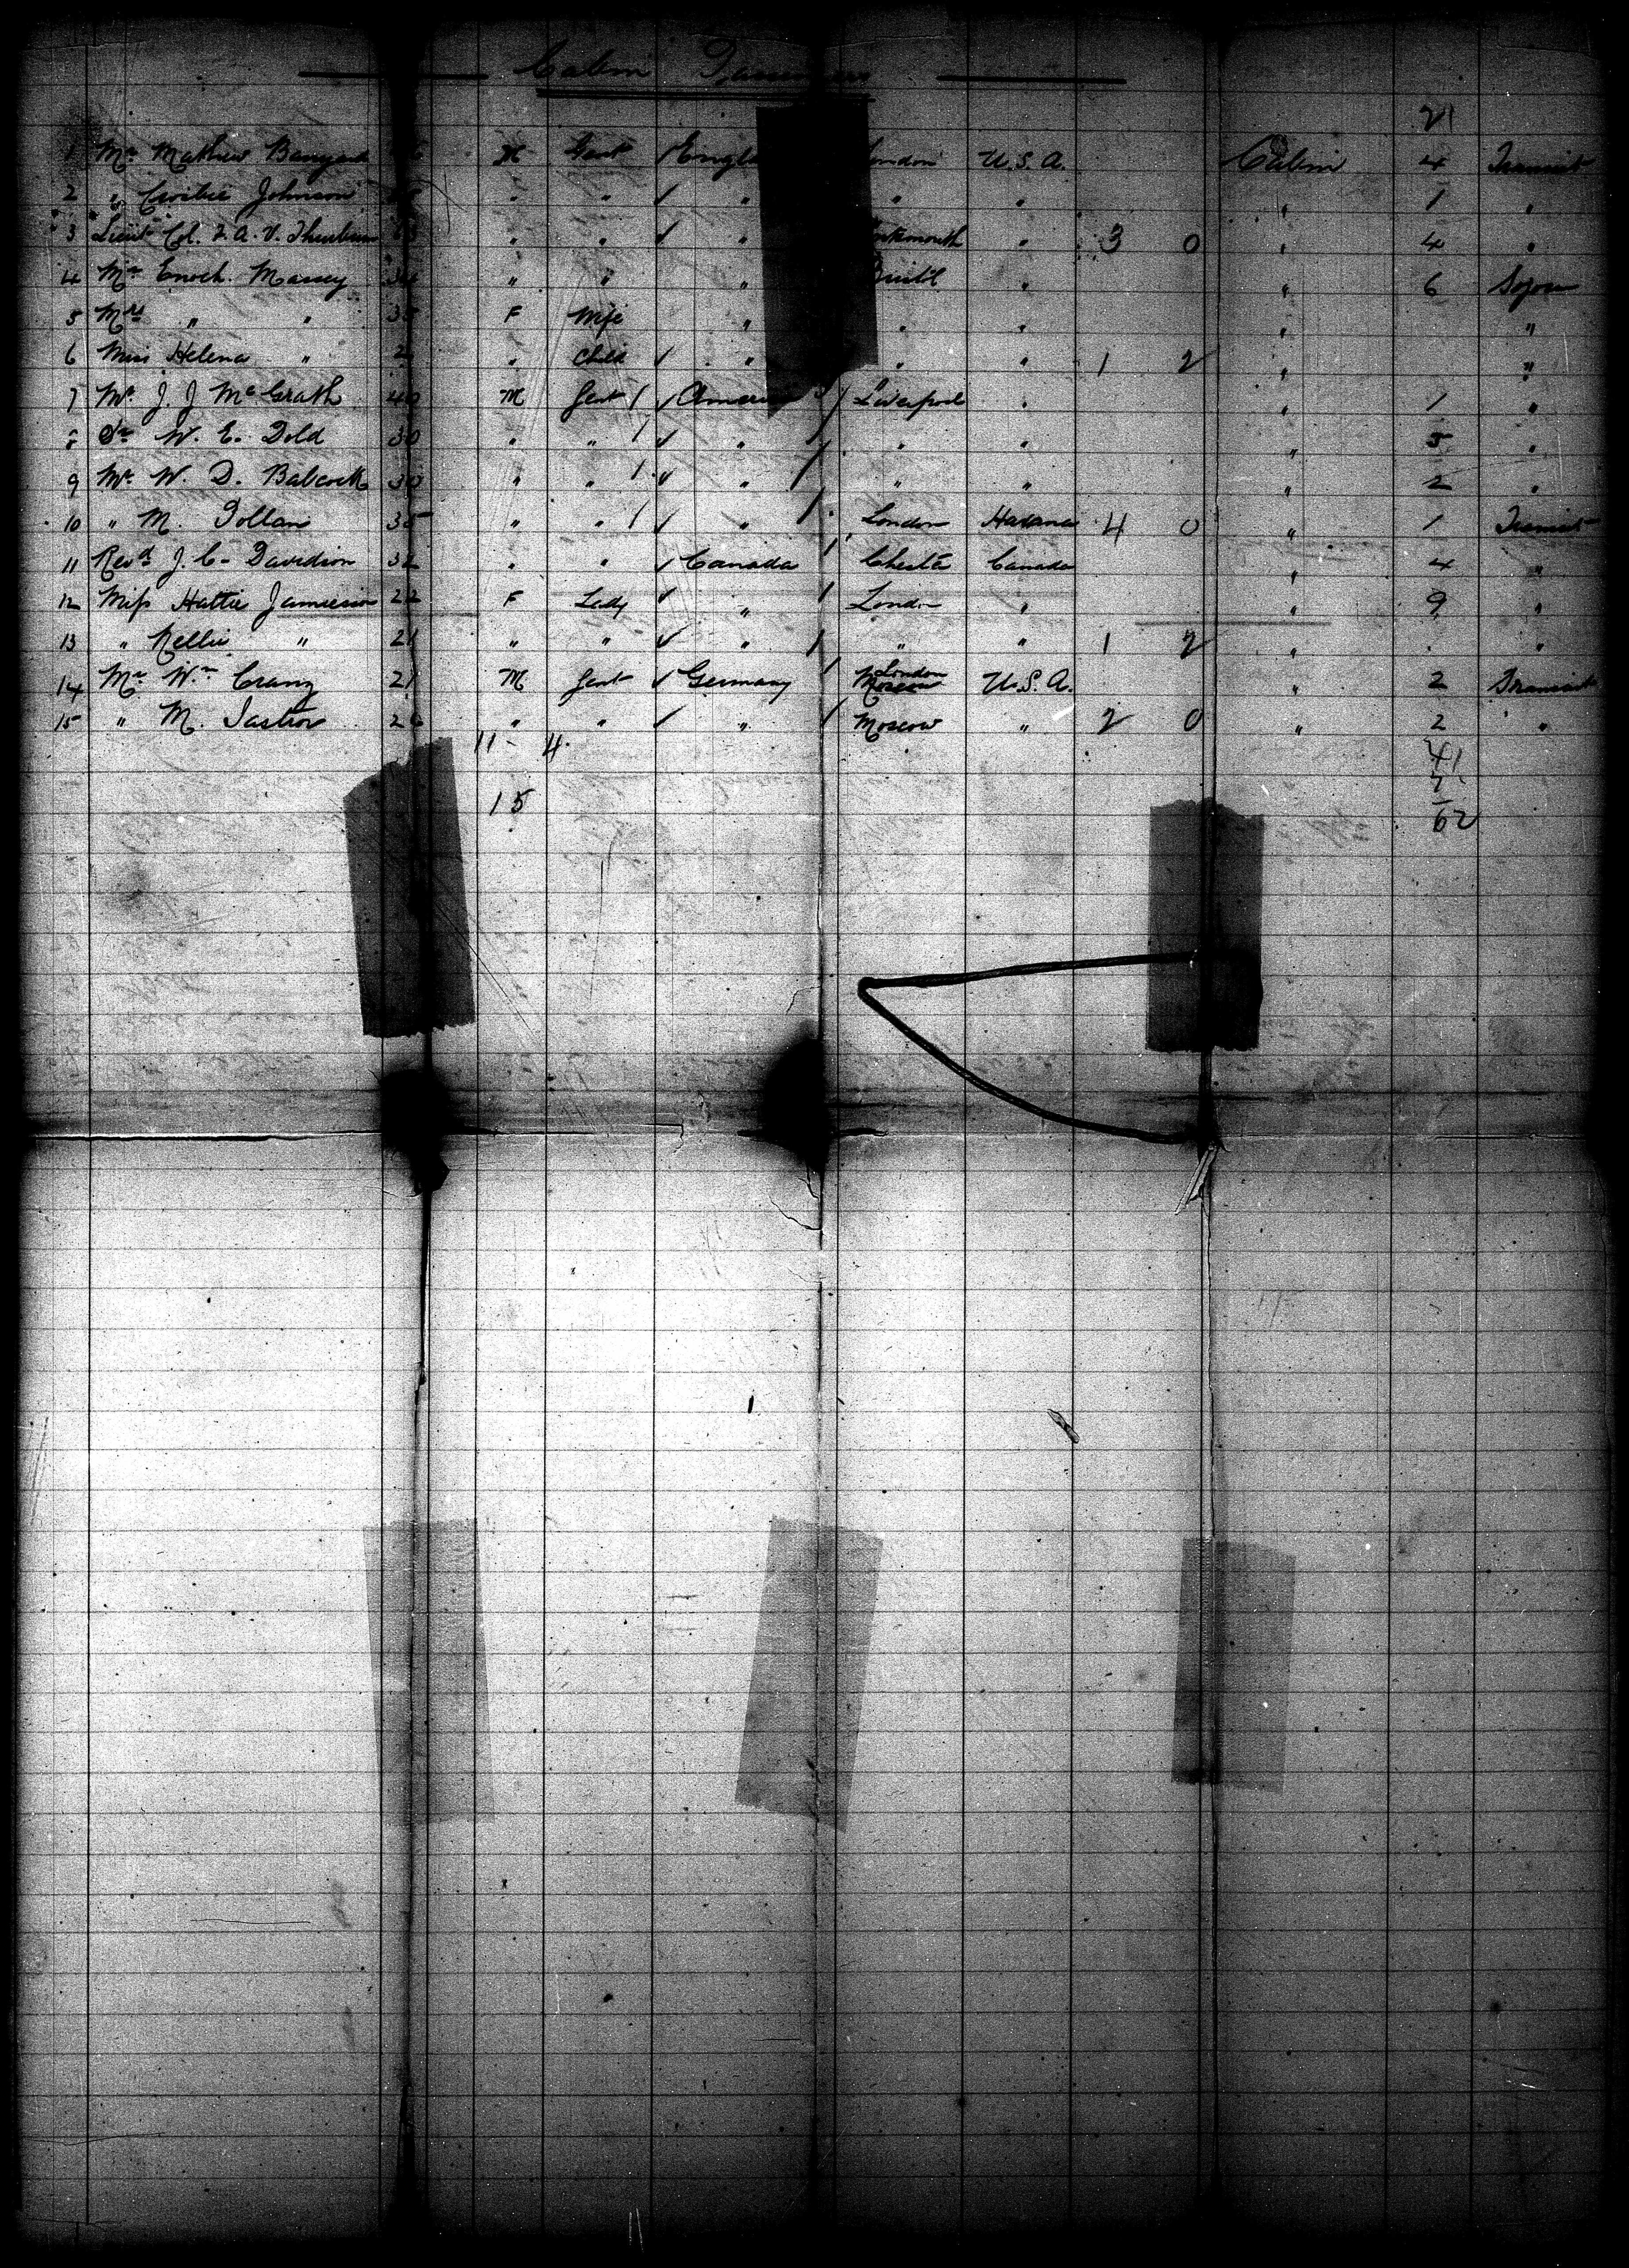 Cabin Passengers
21
1 Mr Mathew M Gent ✓ London U.S.A. Cabin 4 Transit
2 " Johnson " " ✓ " " " " 1 "
3 Lieut Col. " " ✓ " " 3 0 " 4 "
4 Mr Enoch Massey 34 " " " Bristol " " 6 Sojourn
5 Mrs " " 35 F Wife " " " " "
6 Miss Helena " 2 " Child ✓ " " " 1 2 " "
7 Mr J. J McGrath 40 M Gent / ✓ / Liverpool " " 1 "
8 Dr W. E. Dold 30 " " / ✓ " / " " " 5 "
9 Mr W. D. Babcock 30 " " / ✓ " / " " " 2 "
10 " M. 35 " " / ✓ " / London Havana 4 0 " 1 Transit
11 Revd J. C. Davidson 32 " " ✓ Canada / Canada " 4 "
12 Miss Hattie Jamieson 22 F Lady ✓ " / London " " 9 "
13 " Nellie " 21 " " ✓ " / " " 1 2 " "
14 Mr Wm Cranz 21 M Gent ✓ Germany / London Moscow U.S.A. " 2 Transit
15 " M. Jastrow 26 " " ✓ " / Moscow " 2 0 " 2 "
11 - 4. 41
15
62